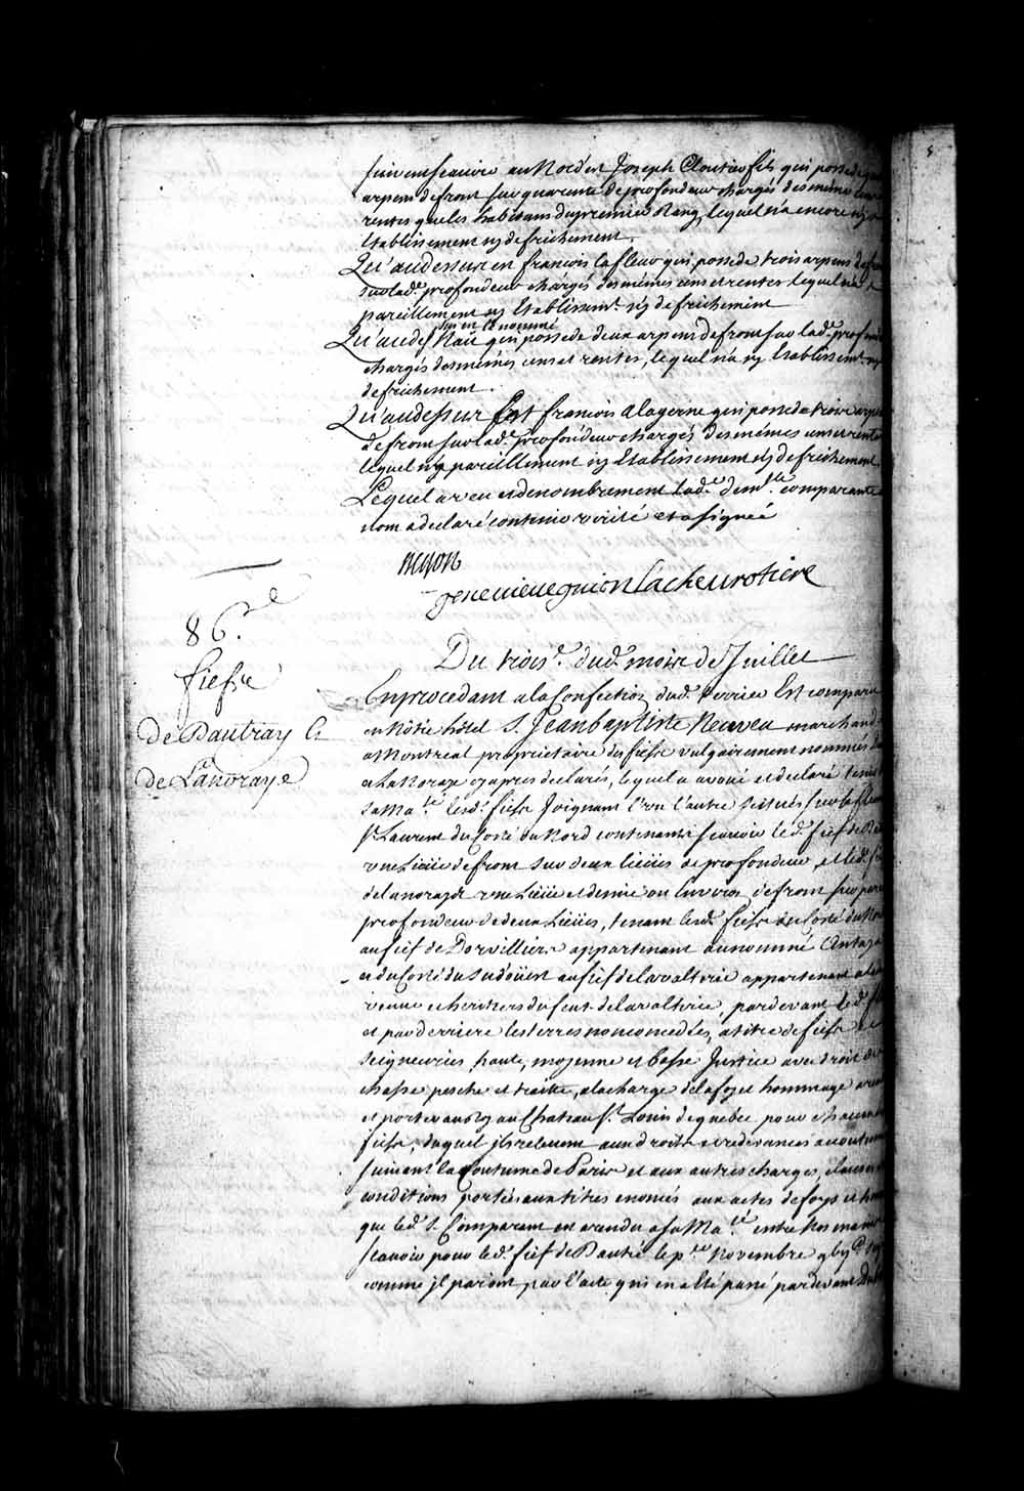 suivent scavoir au Nord'est Joseph Cloutier fils qui possede
arpens de front sur quarante de profondeur chargés des mêmes
rentes que les habitans du premier Rang, lequel n'a encore ny
Etablissement ny defrichement.
Qu'audessus en francois lafleur qui possede trois arpens de
sur lad.e profondeur chargés des mêmes cens et rentes lequel n'a
pareillement ny Etablissem.t ny defrichement
Qu'audes
le nommé
Naü qui possede deux arpens de front sur lad. profondeur
chargés des mêmes cens et rentes, lequel n'a ny Etablissement ny
defrichement.
Qu'audessus Est francois alagerne qui possede trois arpens
de front sur lad.e profondeur chargés des mêmes cens et rentes
lequel n'y pareillement ny Etablissement ny defrichement
Lequel aveu et denombrement lad.e dem.lle comparante
nom a declaré contenir verité et a signée
genevieve guion Lacheurotiere
86.e
fiefs
De Dautray &
de Lanoraye
Du trois.e dud. mois de Juillet
En procedant a la Confection dud. terrier Est comparu
en Nôtre hôtel S. Jean baptiste Neuveu marchand
a Montreal proprietaire des fiefs vulgairement nommés
et La Noraye cy apres declarés, lequel a avoué et declaré tenir
sa Ma.té lesd. fiefs Joignant l'un l'autre scitués sur le fleuve
S.t Laurent du Costé du Nord contenants scavoir led. fief de
une Lieüe de front sur deux lieües de profondeur, et led.
de lanoraye une Lieüe et demie ou Environ de front sur
profondeur de deux Lieües, tenant lesd. fiefs du Costé du
au fief de Dorvilliers appartenant au nommé
et du Costé du Sudoüest au fief de lavaltrie appartenant a la
veuve et heritiers du feu S. de lavaltrie, par devant led.
et par derriere les terres non concedées, a titre de fiefs et
seigneuries, haute, moyenne et basse Justice avec droit de
chasse pesche et traitte, a la charge de la foy et hommage
et porter au Roy au Chateau S.t Louis de quebec pour chacun
fiefs, duquel ils relevent aux droits et redevances accoutumés
suivant la Coutume de Paris et aux autres charges, clauses
conditions portées aux titres enoncés aux actes de foys et
que led. S. Comparant en a rendu a sa Ma.té entre Nos mains
scavoir pour led. fief de Dautré le p.er Novembre
comme il paroist par l'acte qui en a Eté passé par devant